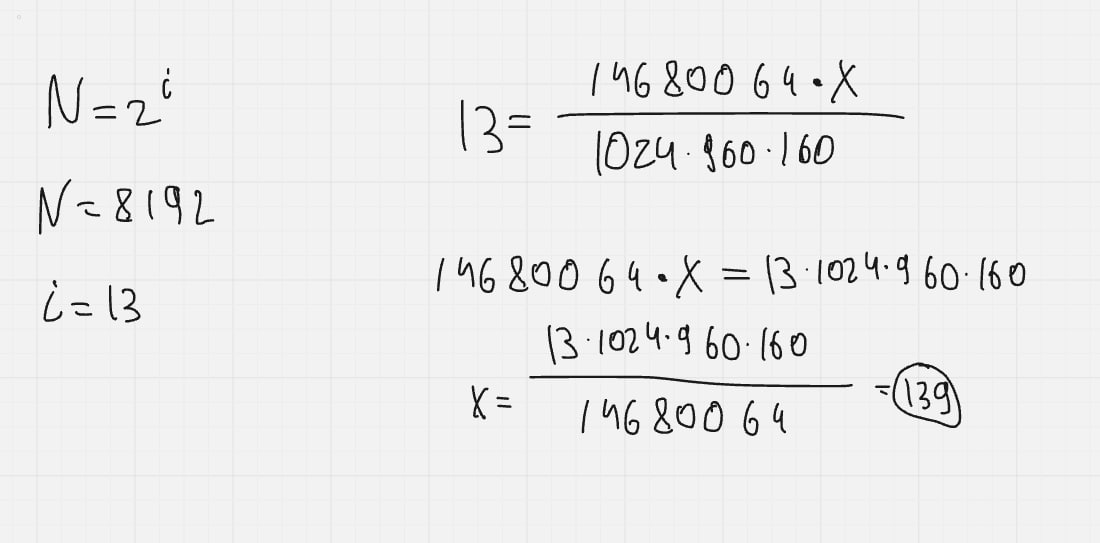 N = 2^i
N = 8192
i = 13
13 = (14680064 · X) / (1024 · 960 · 160)
14680064 · X = 13 · 1024 · 960 · 160
X = (13 · 1024 · 960 · 160) / 14680064 = 139